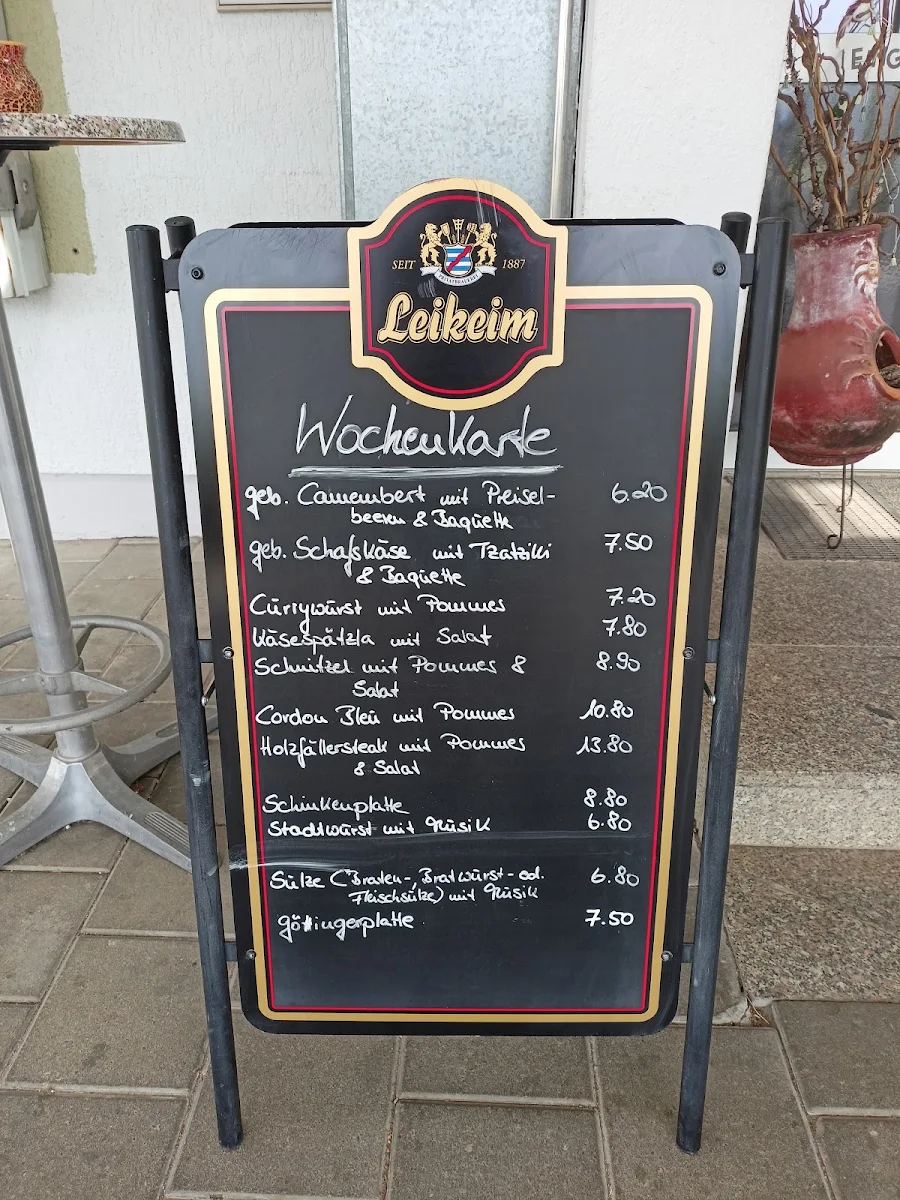 SEIT 1887
PRIVATBRAUEREI
Leikeim
Wochenkarte
geb. Camembert mit Preisel- 6.20
beeren & Baguette
geb. Schafskäse mit Tzatziki 7.50
& Baguette
Currywurst mit Pommes 7.20
Käsespätzla mit Salat 7.80
Schnitzel mit Pommes & 8.90
Salat
Cordon Bleu mit Pommes 10.80
Holzfällersteak mit Pommes 13.80
& Salat
Schinkenplatte 8.80
Stadtwurst mit Musik 6.80
Sülze (Braten-, Bratwurst- od. 6.80
Fleischsülze) mit Musik
Göttingerplatte 7.50